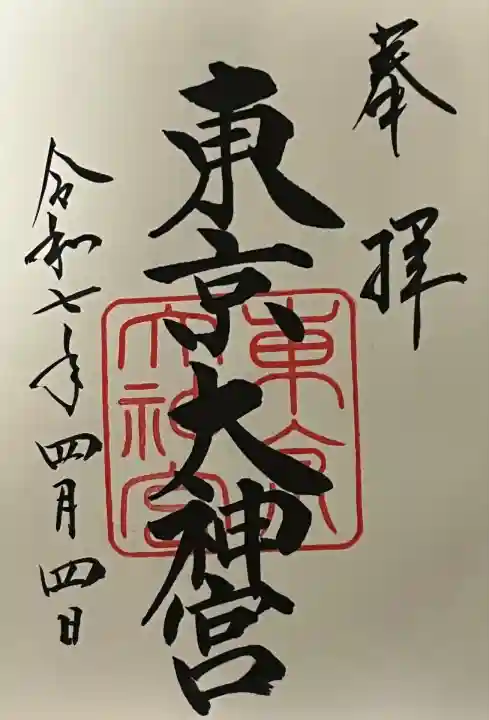 奉拝
東京大神宮
東京
大神宮
令和七年四月四日